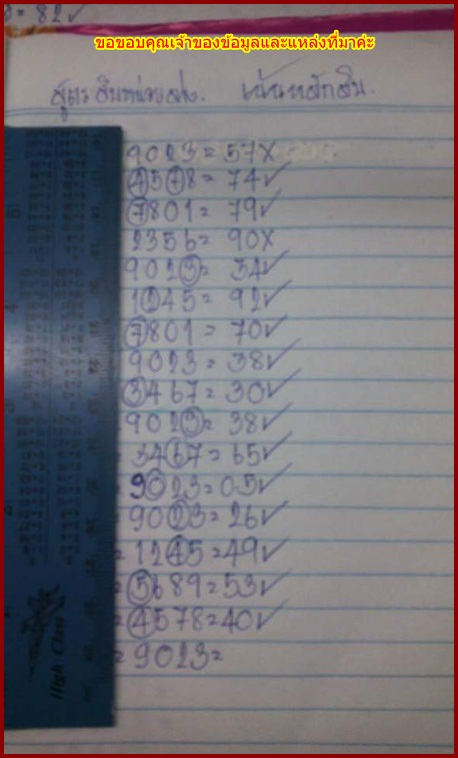 8= 82✓
ขอขอบคุณเจ้าของข้อมูลและแหล่งที่มาค่ะ
สูตร สิบหน่วยล่าง. เน้นหลักสิบ.
9023=57X
4578=74✓
7801=79✓
2356=90X
9023=34✓
1245=92✓
7801=70✓
9023=38✓
3467=30✓
9023=38✓
=3467=65✓
=9023=05✓
=9023=26✓
=1245=49✓
=5689=53✓
=4578=40✓
=9023=
High Class